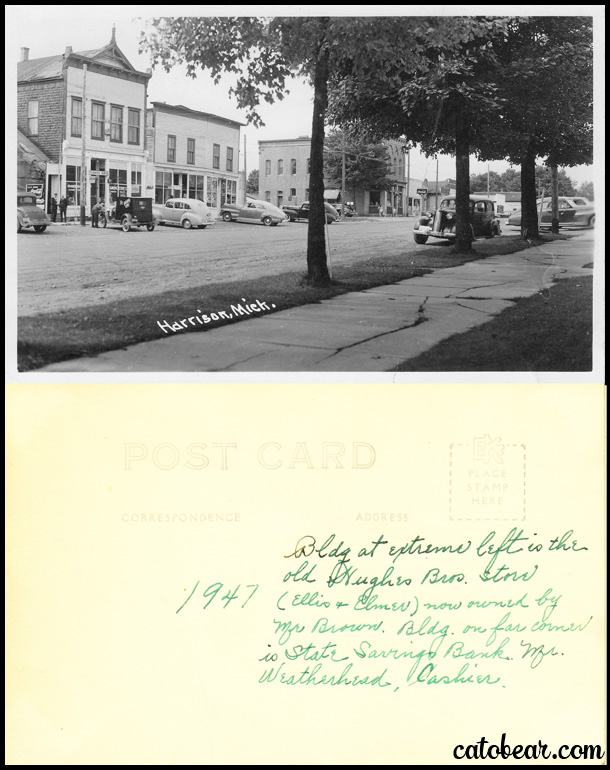 Harrison, Mich.
POST CARD
EK
PLACE
STAMP
HERE
CORRESPONDENCE
ADDRESS
1947
Bldg at extreme left is the
old Hughes Bros. Store
(Ellis & Elmer) now owned by
Mr Brown. Bldg. on far corner
is State Savings Bank. Mr.
Weatherhead, Cashier.
catobear.com